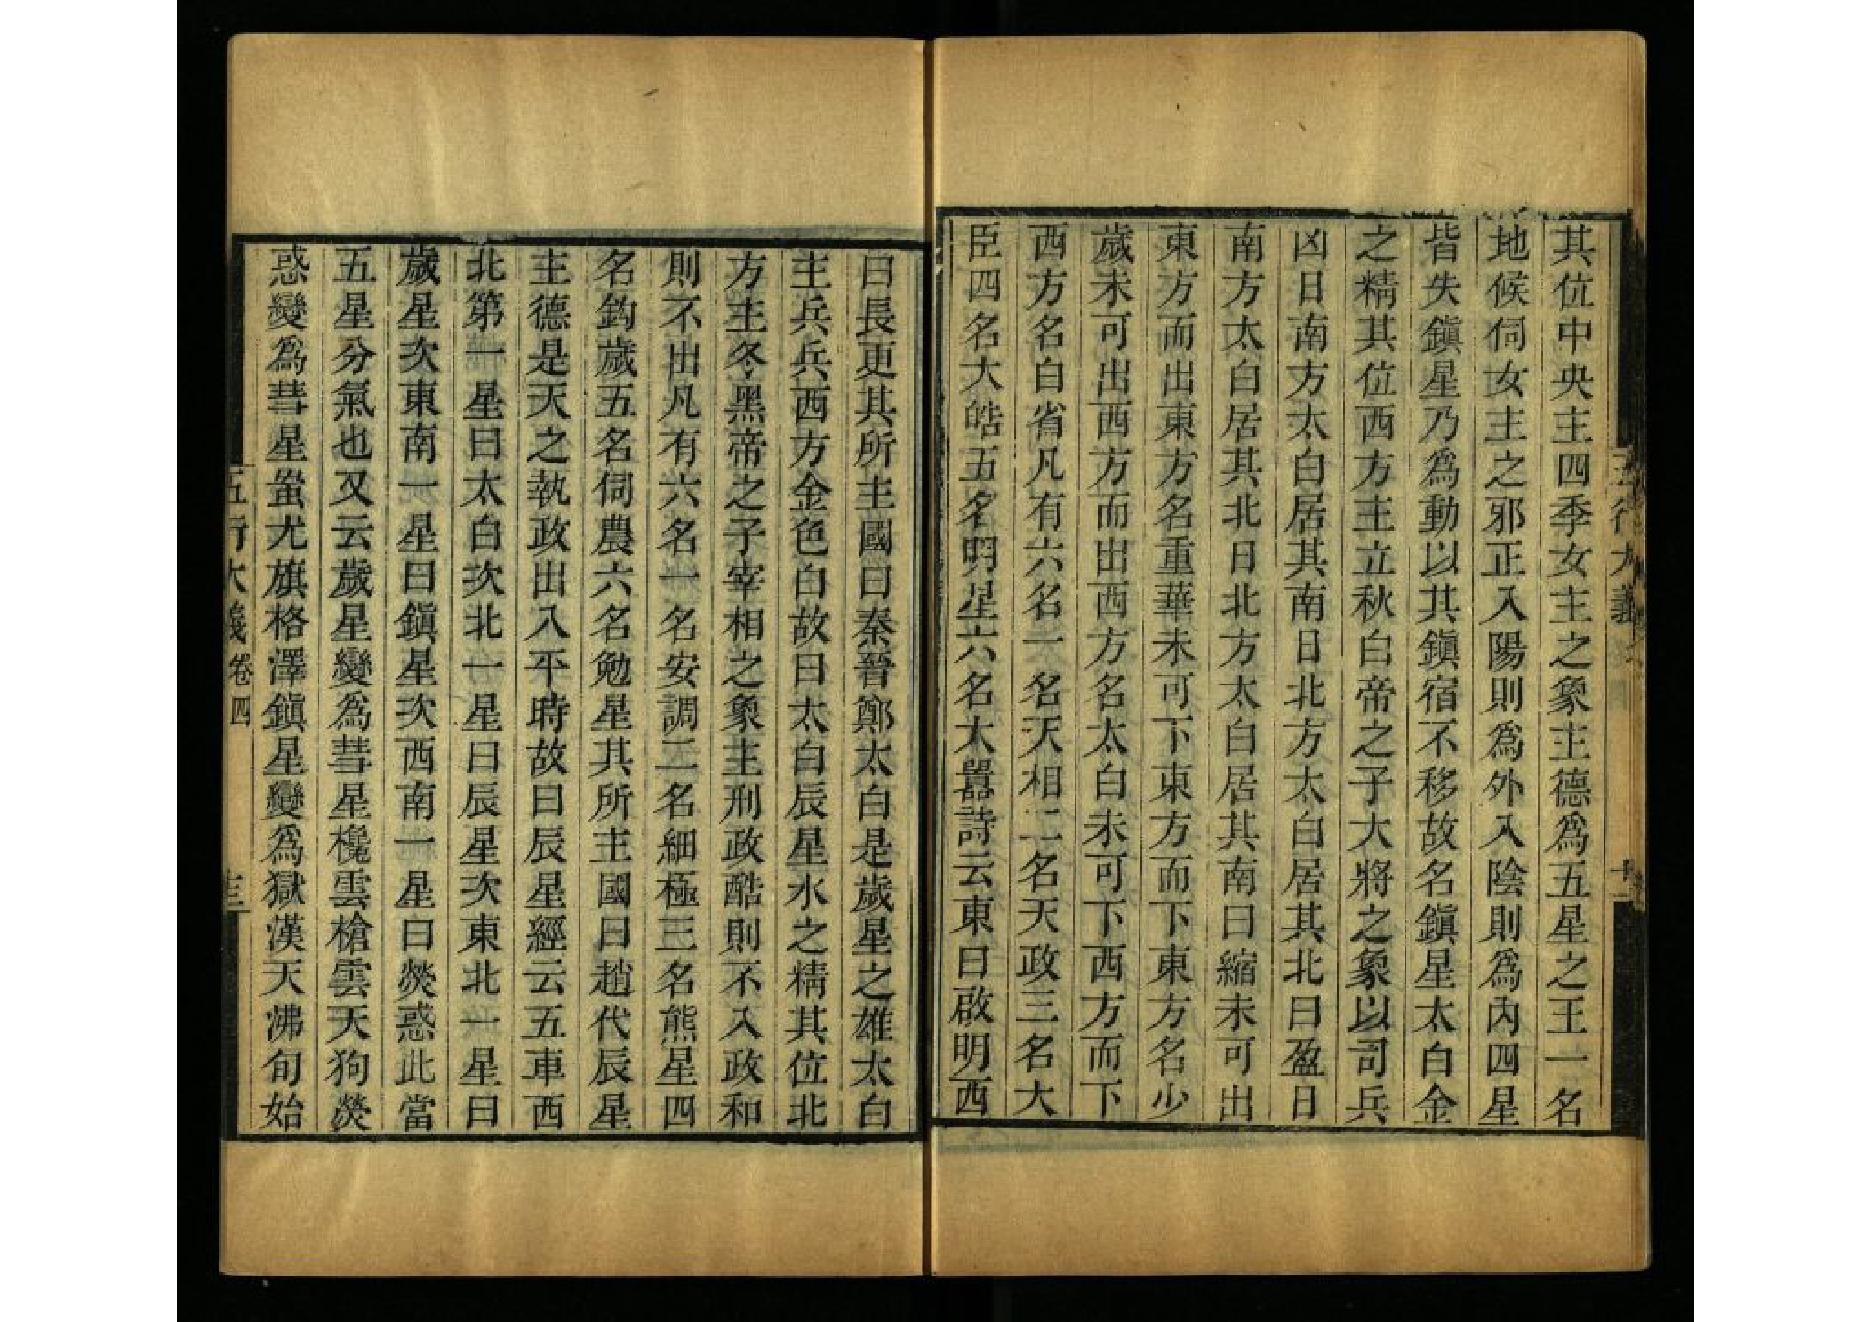 其位中央主四季女主之象主德爲五星之王一名
地候伺女主之邪正入陽則爲外入陰則爲內四星
皆失鎭星乃爲動以其鎭宿不移故名鎭星太白金
之精其位西方主立秋白帝之子大將之象以司兵
凶日南方太白居其南日北方太白居其北曰盈日
南方太白居其北日北方太白居其南曰縮未可出
東方而出東方名重華未可下東方而下東方名少
歲未可出西方而出西方名太白未可下西方而下
西方名白省凡有六名一名天相二名天政三名大
臣四名大皓五名明星六名大囂詩云東曰啟明西
曰長更其所主國曰秦晉鄭太白是歲星之雄太白
主兵兵西方金色白故曰太白辰星水之精其位北
方主冬黑帝之子宰相之象主刑政酷則不入政和
則不出凡有六名一名安調二名細極三名熊星四
名鈎歲五名伺農六名勉星其所主國曰趙代辰星
主德是天之執政出入平時故曰辰星經云五車西
北第一星曰太白次北一星曰辰星次東北一星曰
歲星次東南一星曰鎭星次西南一星曰熒惑此當
五星分氣也又云歲星變爲彗星欃雲槍雲天狗熒
惑變爲彗星蚩尤旗格澤鎭星變爲獄漢天沸旬始
五行大義卷四